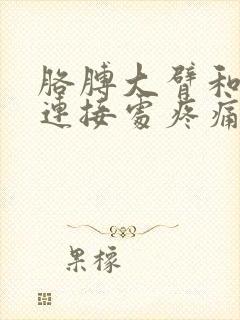 胳膊大臂和
連接處疼痛
果檬